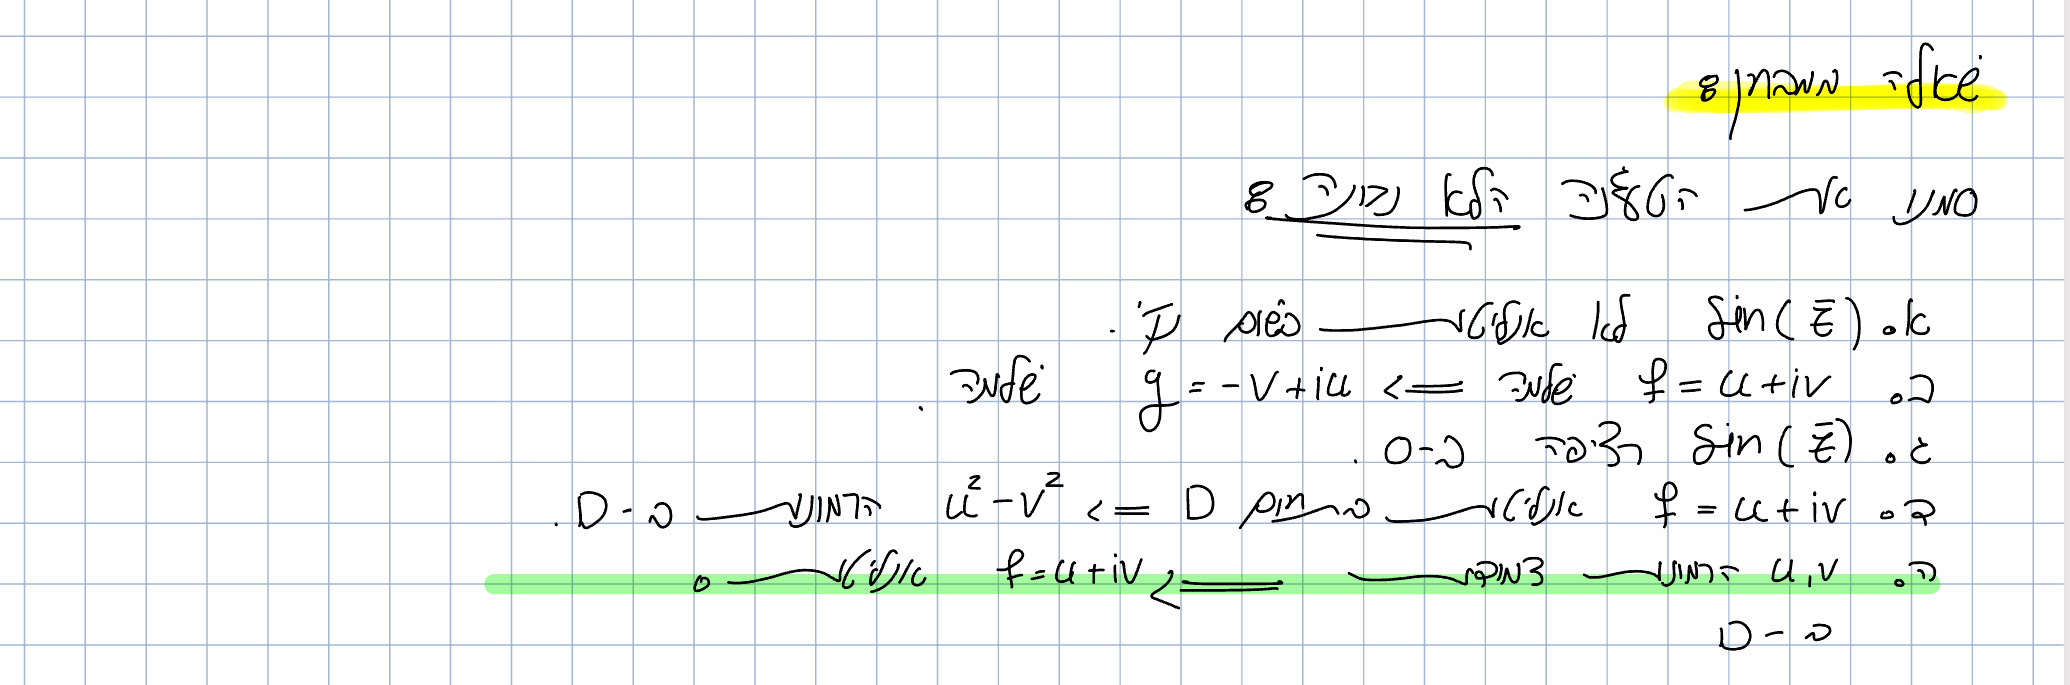 שאלה ממבחן:
סמן את הטענה הלא נכונה:
א. sin(z̄) לא אנליטית בשום z.
ב. f = u+iv שלמה => g = -v+iu שלמה.
ג. sin(z̄) רציפה ב-0.
ד. f = u+iv אנליטית בתחום D => u²-v² הרמונית ב-D.
ה. u,v הרמוניות צמודות => f=u+iv אנליטית.
ב-D